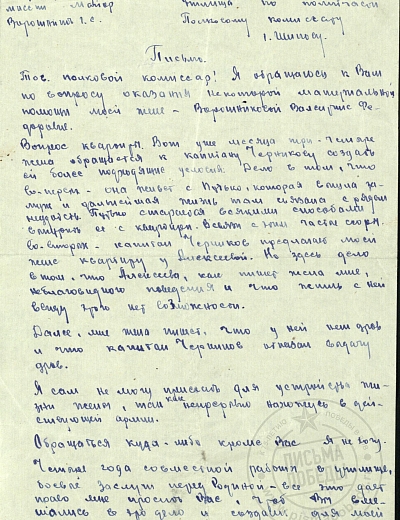 майор училища по политчасти
Ворошников Г.С. Полковому комиссару
т. Шилову.
Письмо.
Тов. полковой комиссар! Я обращаюсь к Вам
по вопросу оказания некоторой материальной
помощи моей жене – Ворошниковой Валентине Фе-
доровне.
Вопрос квартиры. Вот уже месяца три-четыре
жена обращается к капитану Черникову создать
ей более подходящие условия. Дело в том, что
во-первых – она живет с которая вышла за-
муж и дальнейшая жизнь там связана с рядом
неудобств. старается всякими способами
ее с квартиры. с этим части ссоры.
Во-вторых – капитан Черников предлагает моей
жене квартиру у Алексеевой. Но здесь дело
в том, что Алексеева, как пишет жена мне,
неблаговидного поведения и что жить с ней
ввиду этого нет возможности.
Далее, мне жена пишет, что у ней нет дров
и что капитан Черников отказал выдачу
дров.
Я сам не могу приехать для устройства жи-
зни жены, так как непрерывно нахожусь в дей-
ствующей армии.
Обращаться куда-либо кроме Вас я не хочу.
Четыре года совместной работы в училище,
боевые заслуги перед Родиной – все это дает
право мне просить Вас, чтоб Вы вме-
шались в это дело и создали для моей
ПИСЬМА